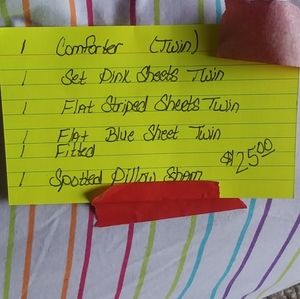 1 Comforter (Twin)
1 Set Pink Sheets Twin
1 Flat Striped Sheets Twin
1 Flat Blue Sheet Twin
1 Fitted
1 Spotted Pillow Sham
$25.00